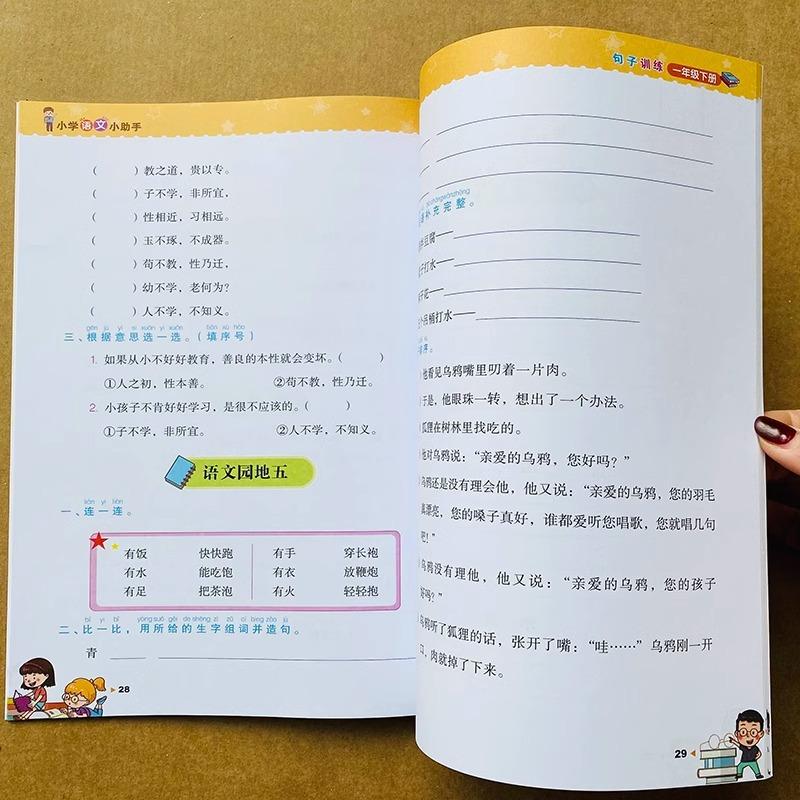 小学语文小助手
( )教之道，贵以专。
( )子不学，非所宜，
( )性相近，习相远。
( )玉不琢，不成器。
( )苟不教，性乃迁，
( )幼不学，老何为？
( )人不学，不知义。
gēn jù yì si xuǎn yi xuǎn tián xù hào
三、根据意思选一选。(填序号)
1. 如果从小不好好教育，善良的本性就会变坏。( )
①人之初，性本善。 ②苟不教，性乃迁。
2. 小孩子不肯好好学习，是很不应该的。( )
①子不学，非所宜。 ②人不学，不知义。
语文园地五
lián yi lián
一、连一连。
有饭 快快跑 有手 穿长袍
有水 能吃饱 有衣 放鞭炮
有足 把茶泡 有火 轻轻抱
bǐ yi bǐ yòng suǒ gěi de shēng zì zǔ cí bìng zào jù
二、比一比，用所给的生字组词并造句。
青
28
句子训练 一年级下册
补充完整。
豆腐——
打水——
开花——
个吊桶打水——
序。
他看见乌鸦嘴里叨着一片肉。
于是，他眼珠一转，想出了一个办法。
狐狸在树林里找吃的。
他对乌鸦说：“亲爱的乌鸦，您好吗？”
乌鸦还是没有理会他，他又说：“亲爱的乌鸦，您的羽毛
真漂亮，您的嗓子真好，谁都爱听您唱歌，您就唱几句
吧！”
乌鸦没有理他，他又说：“亲爱的乌鸦，您的孩子
好吗？”
乌鸦听了狐狸的话，张开了嘴：“哇……”乌鸦刚一开
口，肉就掉了下来。
29